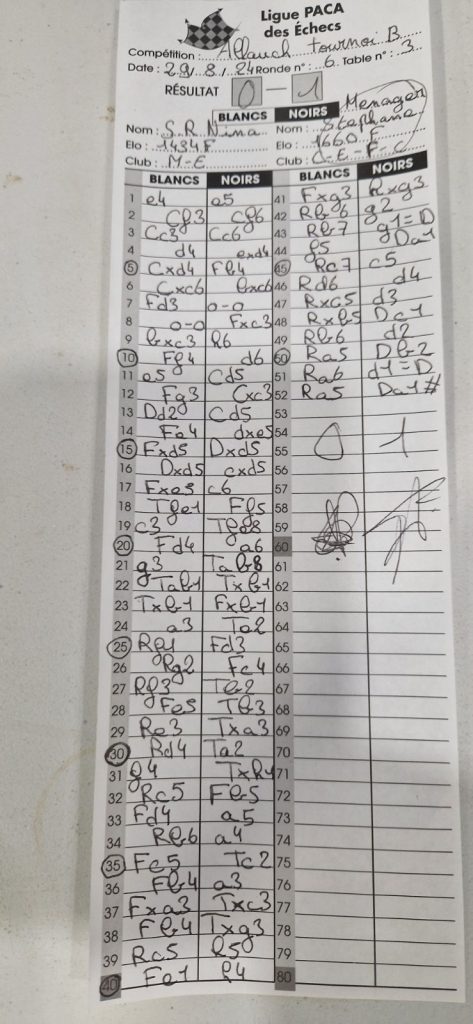 Ligue PACA
des Échecs
Compétition : Allauch tournoi B
Date : 29/8/24 Ronde n° : 6 Table n° : 3
RÉSULTAT 0 — 1
BLANCS NOIRS
Nom : S.R Nina Nom : Menager Stephane
Elo : 1434F Elo : 1660 F
Club : M-E Club : C-E-F-C
BLANCS NOIRS BLANCS NOIRS
1 e4 e5 41 Fxg3 Rxg3
2 Cf3 Cf6 42 Rb6 g2
3 Cc3 Cc6 43 Rb7 g1=D
4 d4 exd4 44 f5 Da1
5 Cxd4 Fb4 45 Rc7 c5
6 Cxc6 bxc6 46 Rd6 d4
7 Fd3 0-0 47 Rxc5 d3
8 0-0 Fxc3 48 Rxb5 Dc1
9 bxc3 h6 49 Rb6 d2
10 Ff4 d6 50 Ra5 Db2
11 e5 Cd5 51 Ra6 d1=D
12 Fg3 Cxc3 52 Ra5 Da1#
13 Dd2 Cd5 53
14 Fe4 dxe5 54
15 Fxd5 Dxd5 55 0 1
16 Dxd5 cxd5 56
17 Fxe5 c6 57
18 Tfe1 Ff5 58
19 c3 Tfe8 59
20 Fd4 a6 60
21 g3 Tab8 61
22 Tab1 Txb1 62
23 Txb1 Fxb1 63
24 a3 Te2 64
25 Rf1 Fd3 65
26 Rg2 Fc4 66
27 Rf3 Tb2 67
28 Fe5 Tb3 68
29 Re3 Txa3 69
30 Rd4 Ta2 70
31 g4 Txh2 71
32 Rc5 Fb5 72
33 Fd4 a5 73
34 Rb6 a4 74
35 Fc5 Tc2 75
36 Fb4 a3 76
37 Fxa3 Txc3 77
38 Fb4 Txg3 78
39 Rc5 h5 79
40 Fe1 h4 80